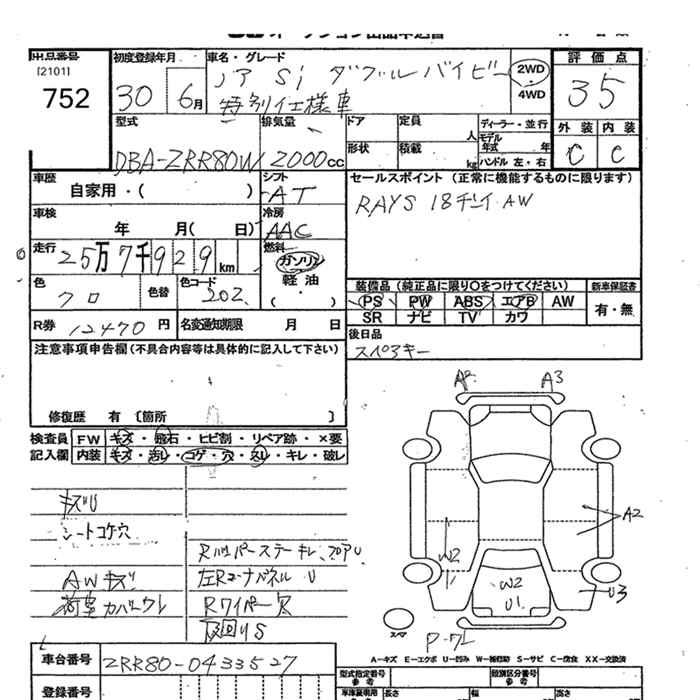 出品番号
[2101]
752
初度登録年月
30 6月
車名・グレード
ノア Si ダブルバイビー
特別仕様車
2WD
4WD
評価点
35
外装 内装
C C
型式
DBA-ZRR80W
排気量
2000cc
ドア
形状
定員 人
積載 kg
ディーラー・並行
モデル
年式 年
ハンドル 左・右
車歴
自家用・( )
シフト
AT
車検
年 月( 日)
冷房
AAC
走行
25万7千929km
燃料
ガソリン
軽油
( ・ )
色
クロ
色替
色コード
202
R券 12470円
名変通知期限 月 日
セールスポイント (正常に機能するものに限ります)
RAYS 18インチ AW
装備品 (純正品に限り○をつけてください)
PS PW ABS エアB AW
SR ナビ TV カワ
新車保証書
有・無
後日品
スペアキー
注意事項申告欄(不具合内容等は具体的に記入して下さい)
修復歴 有 〔箇所 〕
検査員
記入欄
FW キズ・飛石・ヒビ割・リペア跡・×要
内装 キズ・汚レ・コゲ・穴・スレ・キレ・破レ
キズU
シートコゲ穴
AWキズ
荷室カバーウレ
左Rコーナパネル U
Rワイパー欠
下回りS
A2 A3
A2
W2
W2
U1
U3
スマ
A－キズ E－エクボ U－凹み W－補修跡 S－サビ C－腐食 XX－交換済
車台番号
ZRR80-0433527
登録番号
型式指定番号
参考
類別区分番号
参考
長さ 幅 高さ